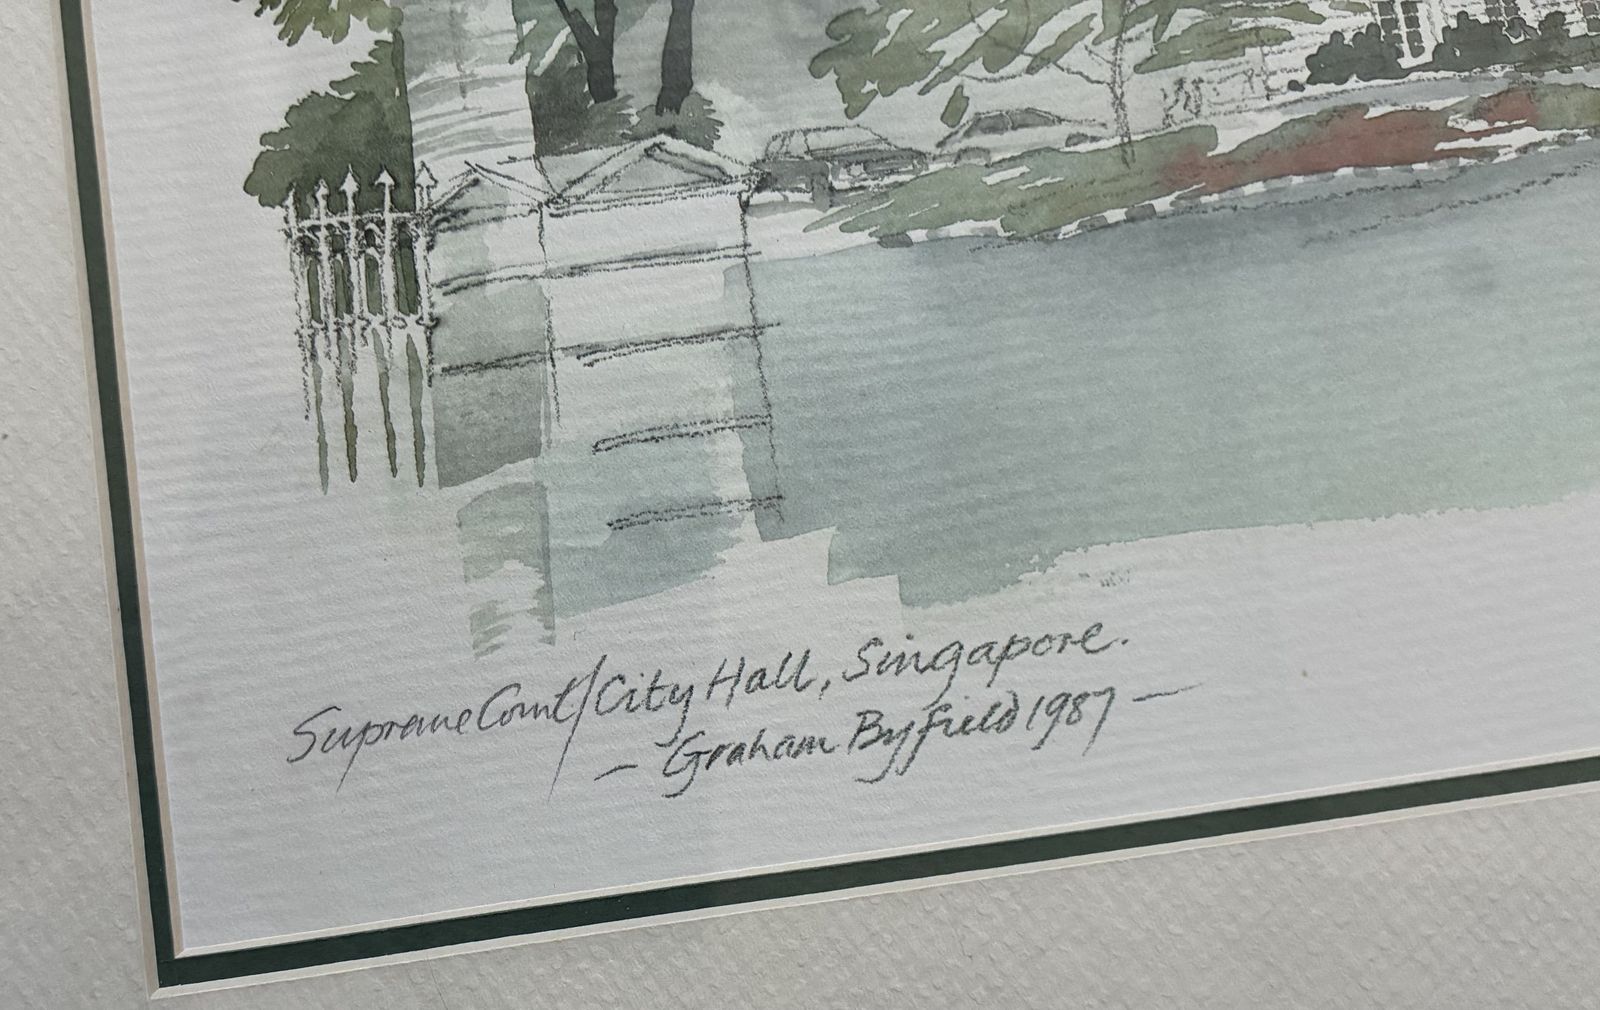 Supreme Court/City Hall, Singapore.
— Graham Byfield 1987 —